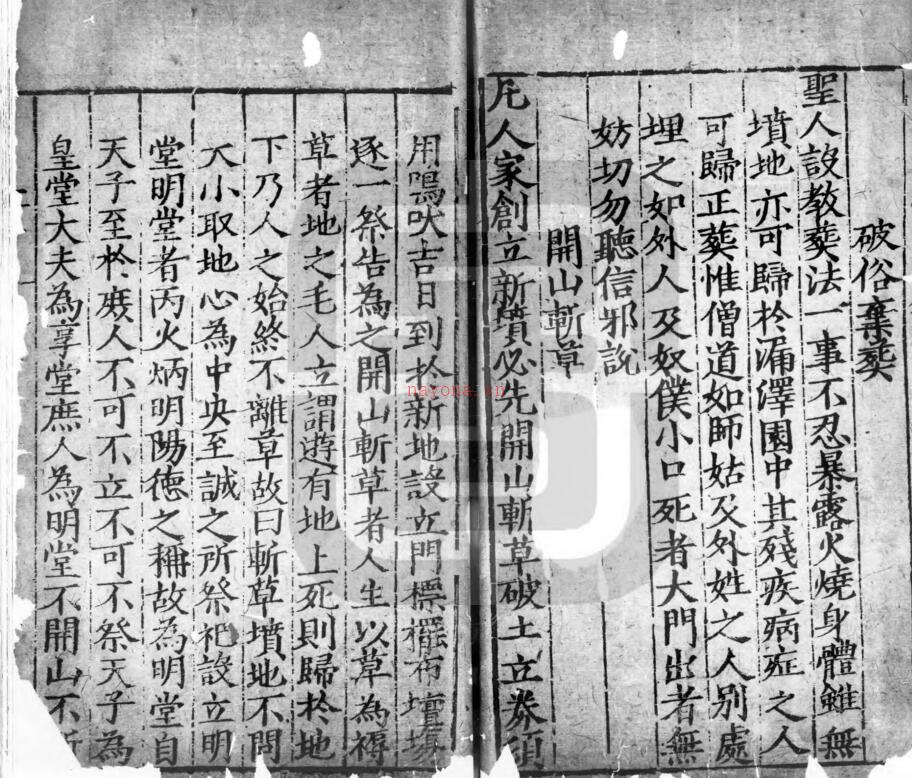 破俗棄葬
聖人設教葬法一事不忍暴露火燒身體雖無
墳地亦可歸於漏澤園中其殘疾病症之人
可歸正葬惟僧道如師姑及外姓之人別處
埋之如外人及奴僕小口死者大門出者無
妨切勿聽信邪說
開山斬草
凡人家創立新墳必先開山斬草破土立券須
用鳴吠吉日到於新地設立門標擺布壇場
逐一祭告為之開山斬草者人生以草為褥
草者地之毛人立謂遊有地上死則歸於地
下乃人之始終不離草故曰斬草墳地不問
大小取地心為中央至誠之所祭祀設立明
堂明堂者丙火炳明陽德之稱故為明堂自
天子至於庶人不可不立不可不祭天子為
皇堂大夫為享堂庶人為明堂不開山不
nayona.cn